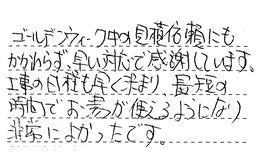 ゴールデンウィーク中の見積依頼にも
かかわらず、早い対応で感謝しています。
工事の日程も早く決まり、最短の
時間でお湯が使えるようになり
非常によかったです。